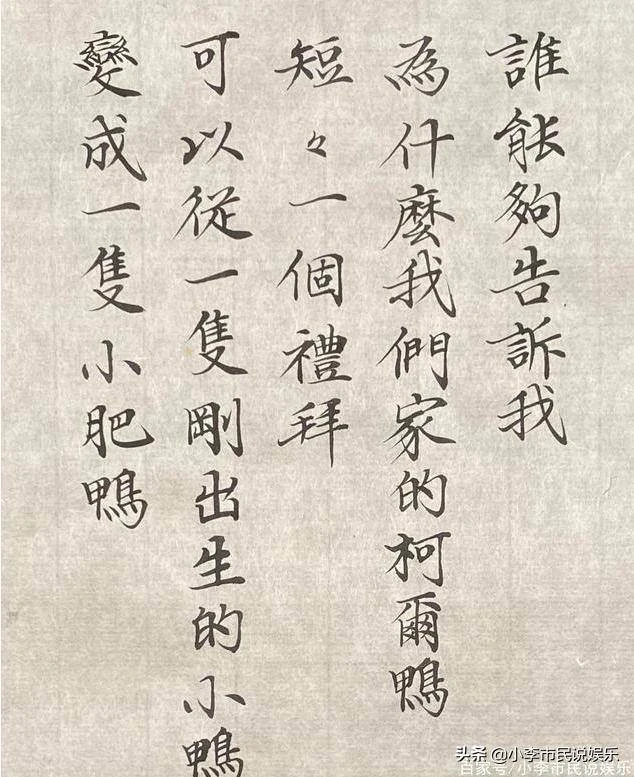 誰能夠告訴我
為什麼我們家的柯爾鴨
短々一個禮拜
可以從一隻剛出生的小鴨
變成一隻小肥鴨
头条 @小李市民说娱乐
百家号/小李市民说娱乐